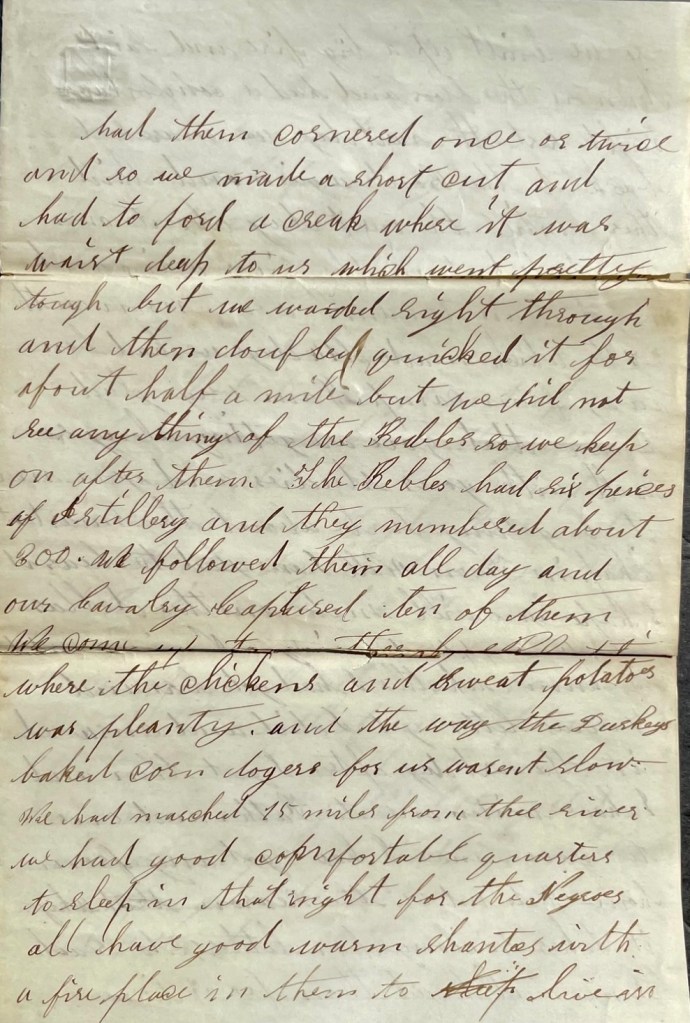 had them cornered once or twice
and so we made a short cut and
had to ford a creak where it was
waist deap to us which went pretty
tough but we waided right through
and then doubled quicked it for
about half a mile but we did not
see any thing of the Rebles so we keep
on after them. The Rebles had six peices
of Artillery and they numbered about
300. We followed them all day and
our Cavalry Captured ten of them
We come
where the chickens and sweat potatoes
was pleanty. and the way the Darkeys
baked corn dogers for us wasent slow
We had marched 15 miles from the river
we had good comfortable quarters
to sleep in that night for the Negroes
all have good warm shantes with
a fire place in them to live in